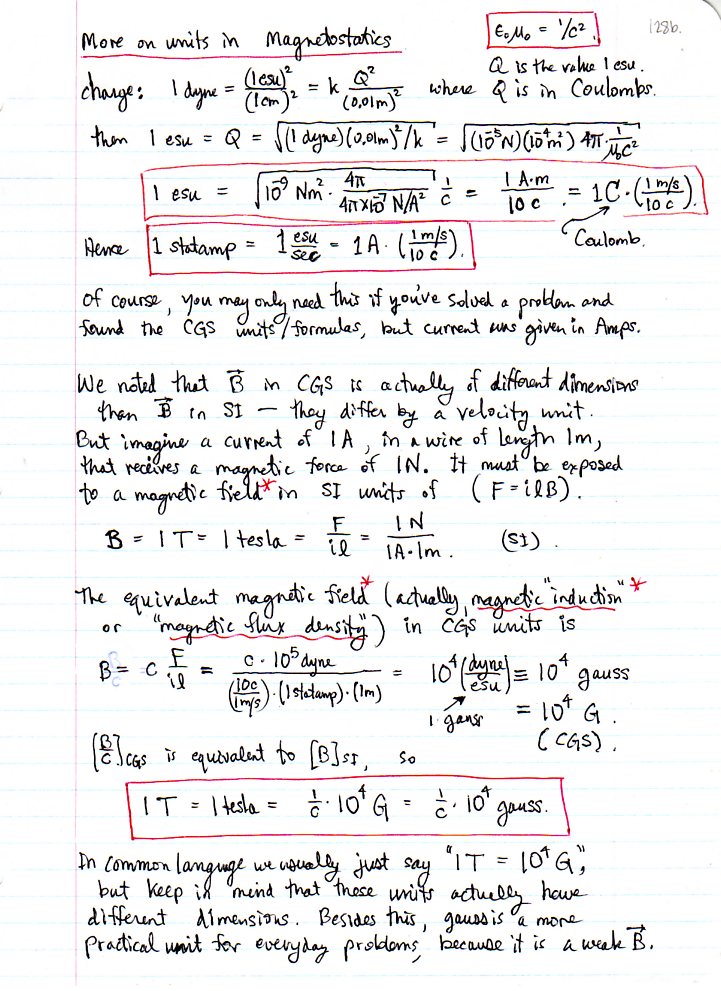 ε₀μ₀ = 1/c²
128b.
More on units in Magnetostatics
Q is the value 1 esu.
charge: 1 dyne = (1esu)²/(1cm)² = k Q²/(0.01m)² where Q is in Coulombs.
then 1 esu = Q = √((1 dyne)(0.01m)²/k) = √((10⁻⁵N)(10⁻⁴m²) 4π 1/μ₀c²)
1 esu = √(10⁻⁹ Nm² · 4π/(4π×10⁻⁷ N/A²)) 1/c = 1 A·m/10 c = 1C·(1 m/s/10 c).
Coulomb.
Hence 1 statamp = 1 esu/sec = 1A · (1 m/s/10 c).
Of course, you may only need this if you've solved a problem and
found the CGS units/formulas, but current was given in Amps.
We noted that B⃗ in CGS is actually of different dimensions
than B⃗ in SI — they differ by a velocity unit.
But imagine a current of 1A, in a wire of length 1m,
that receives a magnetic force of 1N. It must be exposed
to a magnetic field* in SI units of (F=ilB).
B = 1T = 1 tesla = F/il = 1N/1A·1m. (SI)
The equivalent magnetic field* (actually "magnetic induction"*
or "magnetic flux density") in CGS units is
B = c F/il = c·10⁵dyne/((10c/1m/s)·(1statamp)·(1m)) = 10⁴(dyne/esu) ≡ 10⁴ gauss
1 gauss = 10⁴ G.
(CGS).
[B/c]CGS is equivalent to [B]SI, so
1T = 1tesla = 1/c · 10⁴ G = 1/c · 10⁴ gauss.
In common language we usually just say "1T = 10⁴G",
but keep in mind that these units actually have
different dimensions. Besides this, gauss is a more
practical unit for everyday problems, because it is a weak B⃗.